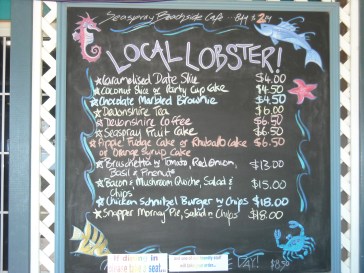 Seaspray Beachside Cafe
LOCAL LOBSTER!
Caramelised Date Slice $4.00
Coconut Slice or Party Cup Cake $4.50
Chocolate Marbled Brownie $4.50
Devonshire Tea $6.00
Devonshire Coffee $6.50
Seaspray Fruit Cake $6.50
Fudge Cake or Rhubarb Cake $6.50
or Orange Syrup Cake
Bruschetta w Tomato, Red Onion, $13.00
Basil & Pinenuts
Bacon & Mushroom Quiche, Salad & $15.00
Chips
Chicken Schnitzel Burger w Chips $18.00
Snapper Mornay Pie, salad n Chips $18.00
$8.50